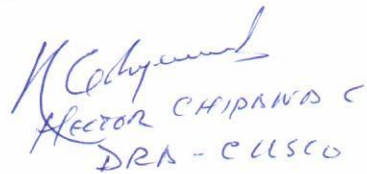 HECTOR CHIPANA C
DRA - CUSCO